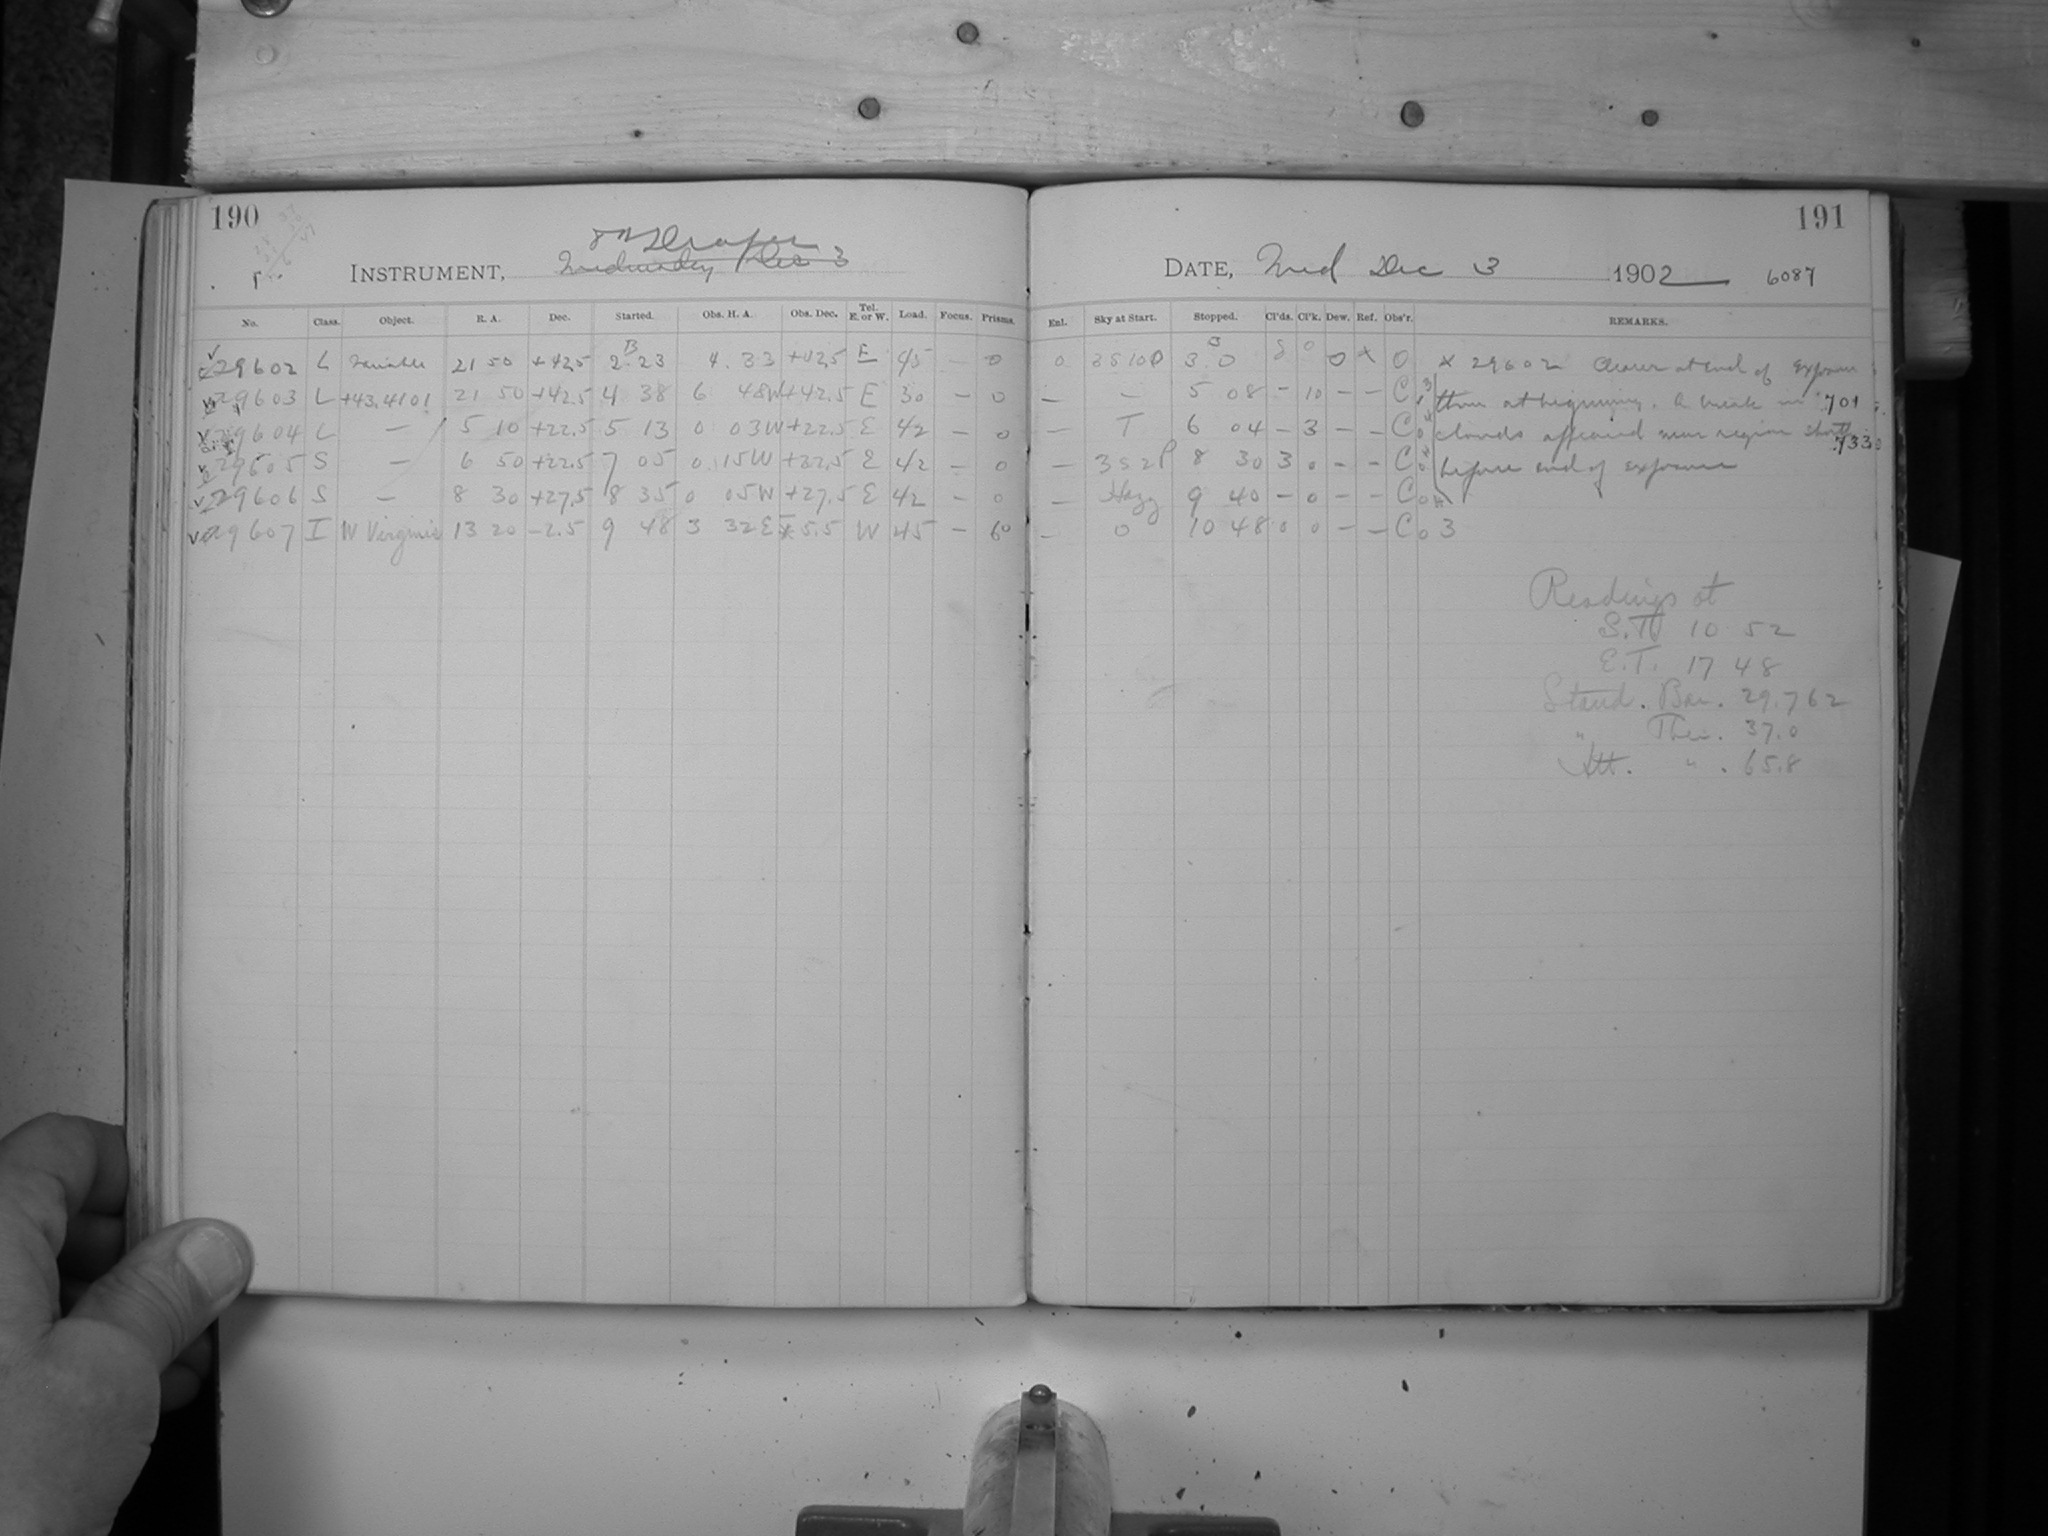 190
8 in Draper
INSTRUMENT, Wednesday Dec 3
No. Class. Object. R. A. Dec. Started. Obs. H. A. Obs. Dec. Tel. E. or W. Load. Focus. Prisms.
29602 L Variable 21 50 +42.5 2 23 4 33 +42.5 E 45 – 0
29603 L +43.4101 21 50 +42.5 4 38 6 48W +42.5 E 30 – 0
29604 L – 5 10 +22.5 5 13 0 03W +22.5 E 42 – 0
29605 S – 6 50 +22.5 7 05 0 15W +22.5 E 42 – 0
29606 S – 8 30 +27.5 8 35 0 05W +27.5 E 42 – 0
29607 I W Virginis 13 20 –2.5 9 48 3 32E 5.5 W 45 – 60
191
DATE, Wed Dec 3 1902 6087
Enl. Sky at Start. Stopped. Cl'ds. Cl'k. Dew. Ref. Obs'r. REMARKS.
0 3S10P 3 0 8 0 0 x O x 29602 Clearer at end of exposure
– – 5 08 – 10 – – C than at beginning. A break in 701
– T 6 04 – 3 – – C clouds appeared near region shortly 733
– 3S2P 8 30 3 0 – – C before end of exposure
– Hazy 9 40 – 0 – – C
– 0 10 48 0 0 – – C 3
Readings at
S.T. 10 52
E.T. 17 48
Stand. Bar. 29.762
" Ther. 37.0
Att. " . 65.8